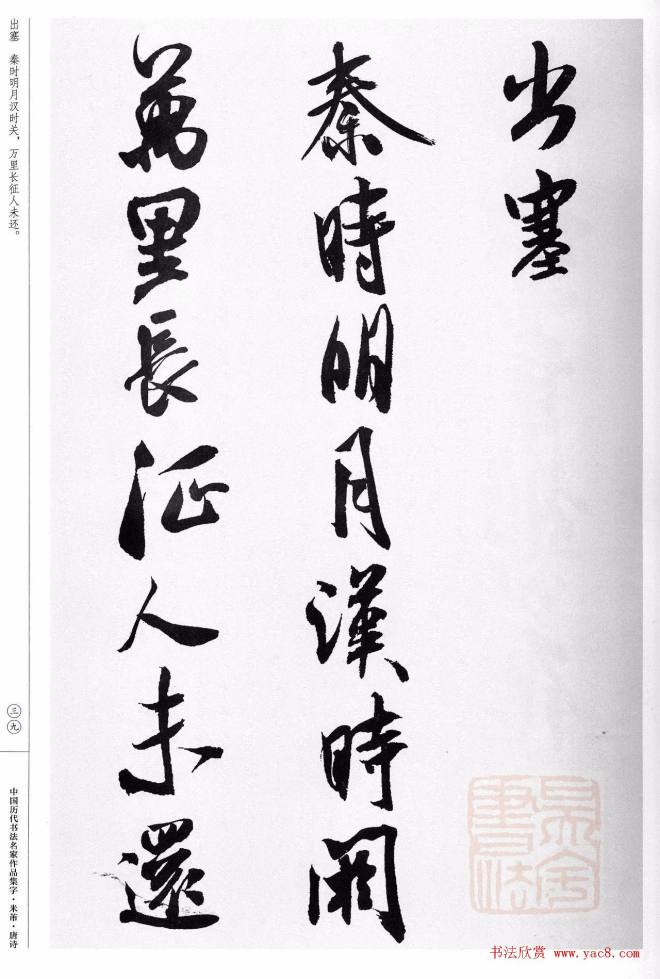 出塞
秦時明月漢時關
萬里長征人未還
出塞 秦时明月汉时关，万里长征人未还。
三九
中国历代书法名家作品集字·米芾·唐诗
书法欣赏 www.yac8.com